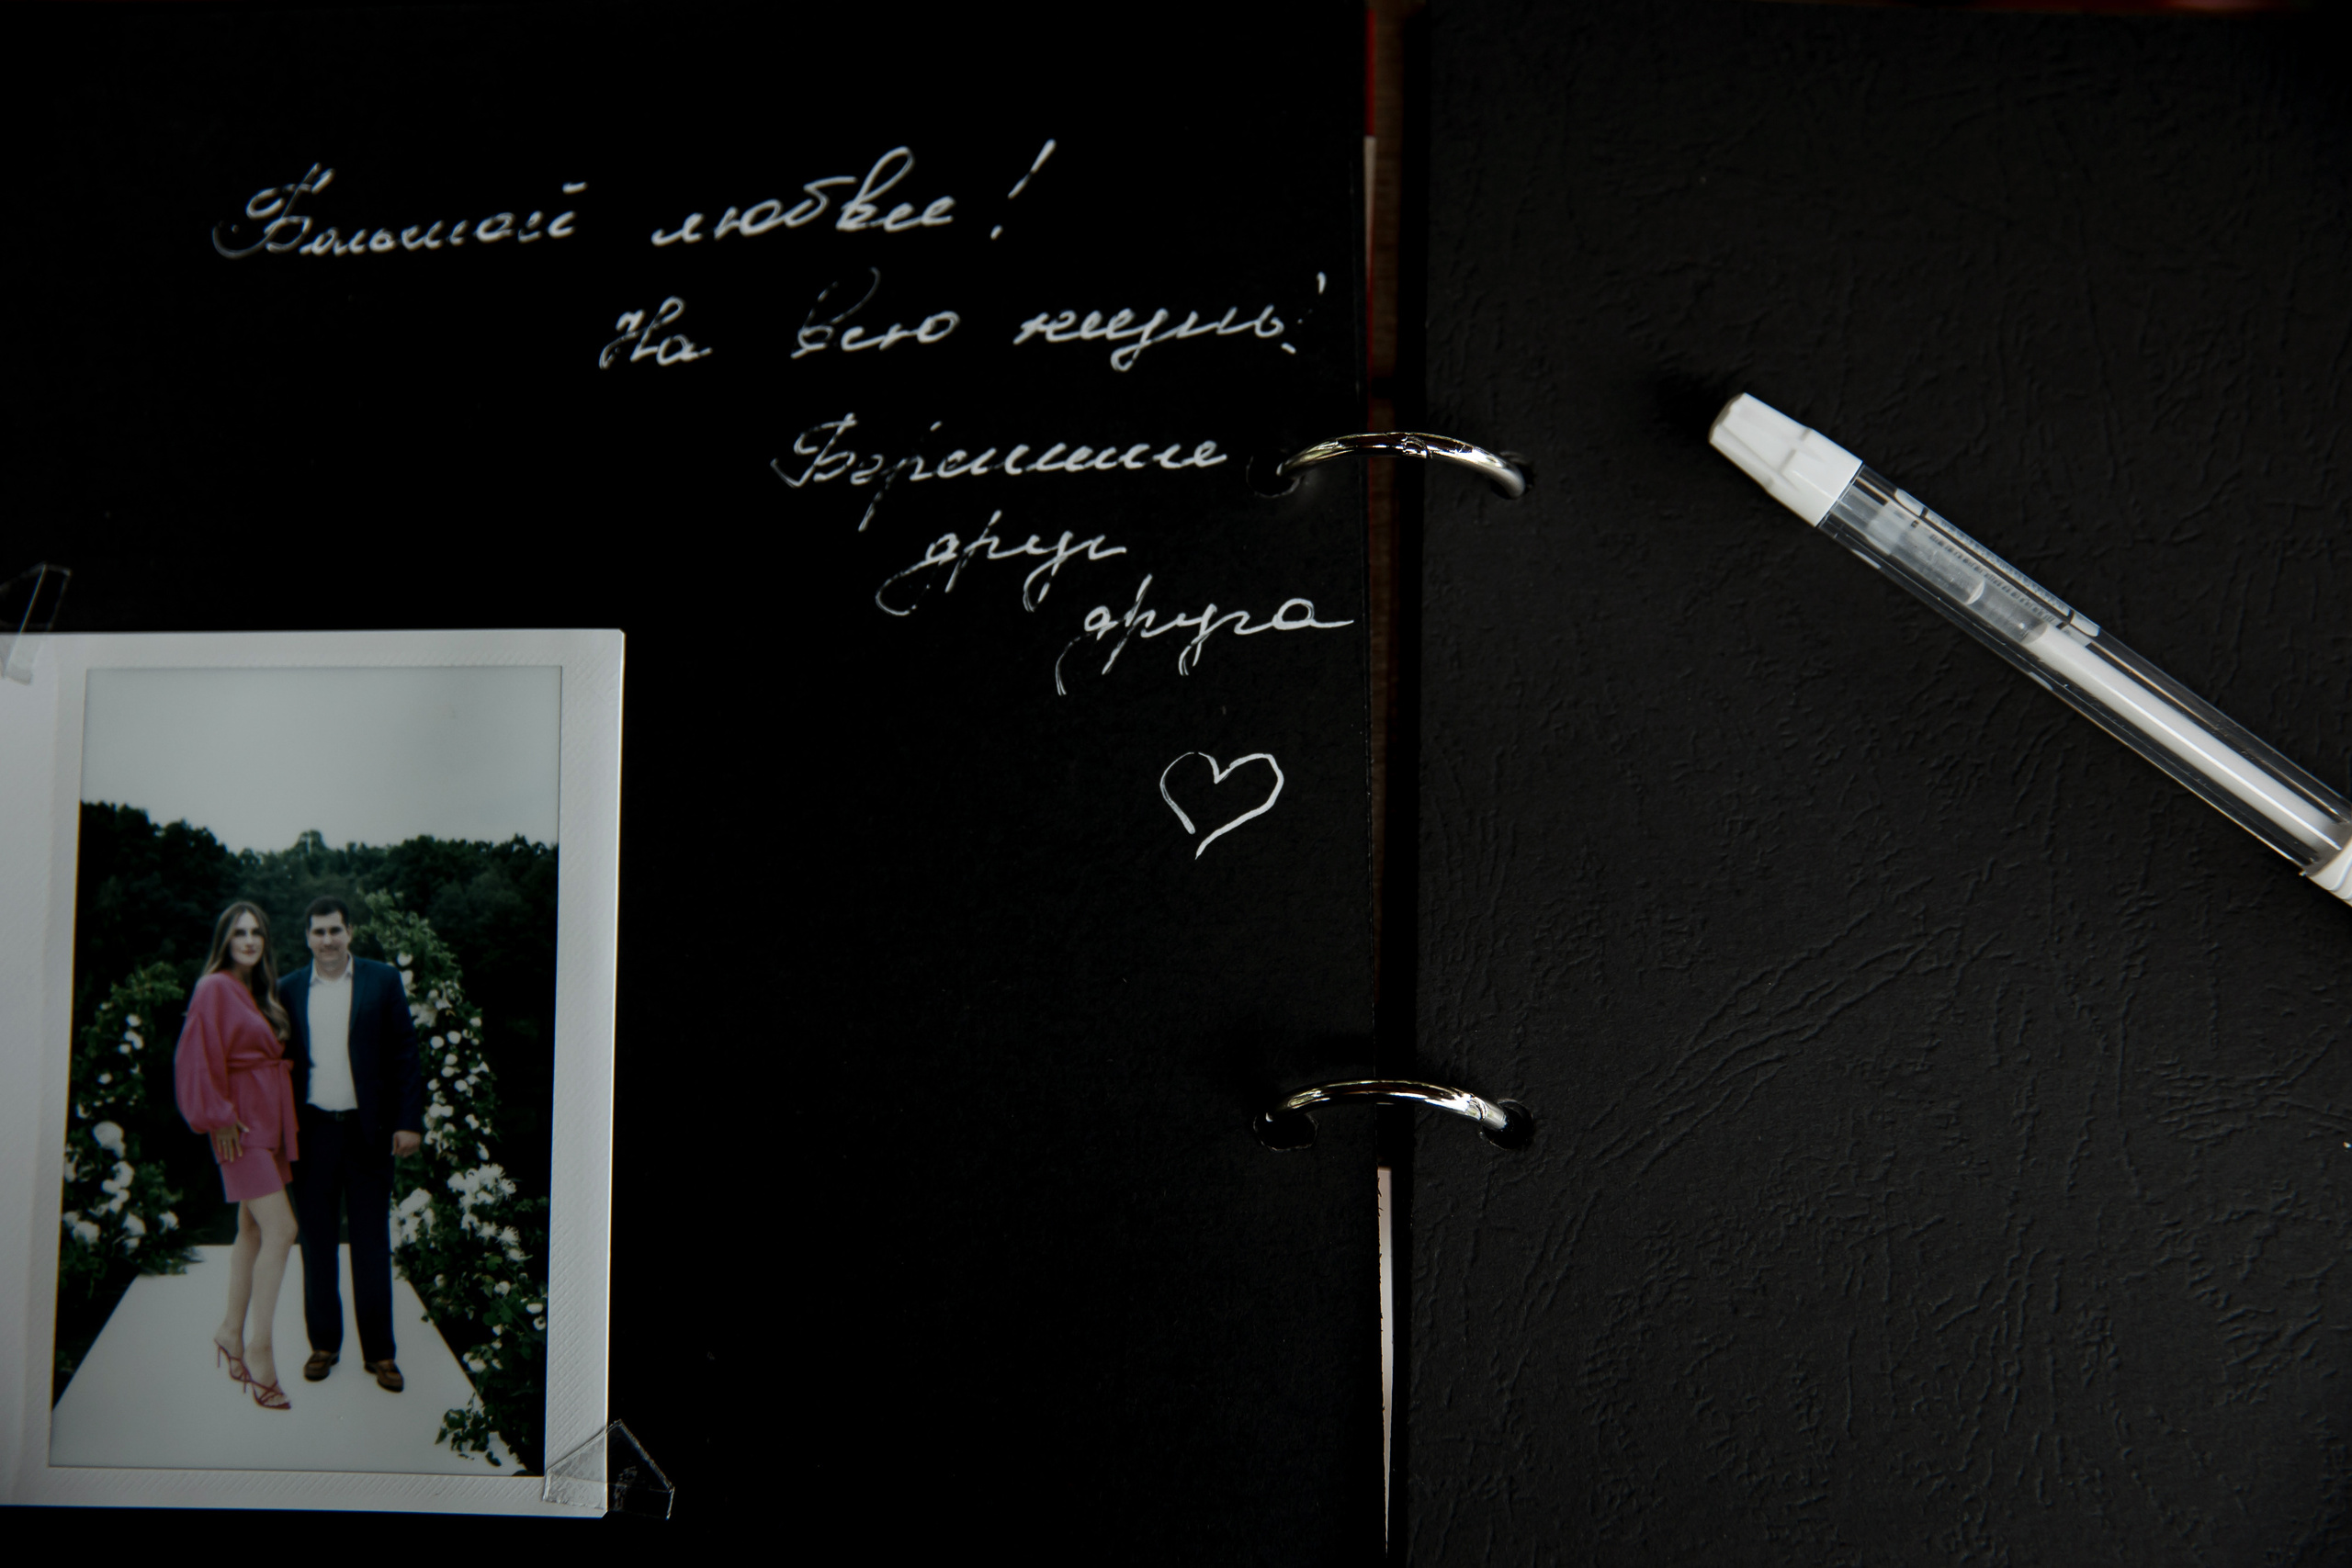 Большой любви!
На всю жизнь!
Берегите
друг
друга